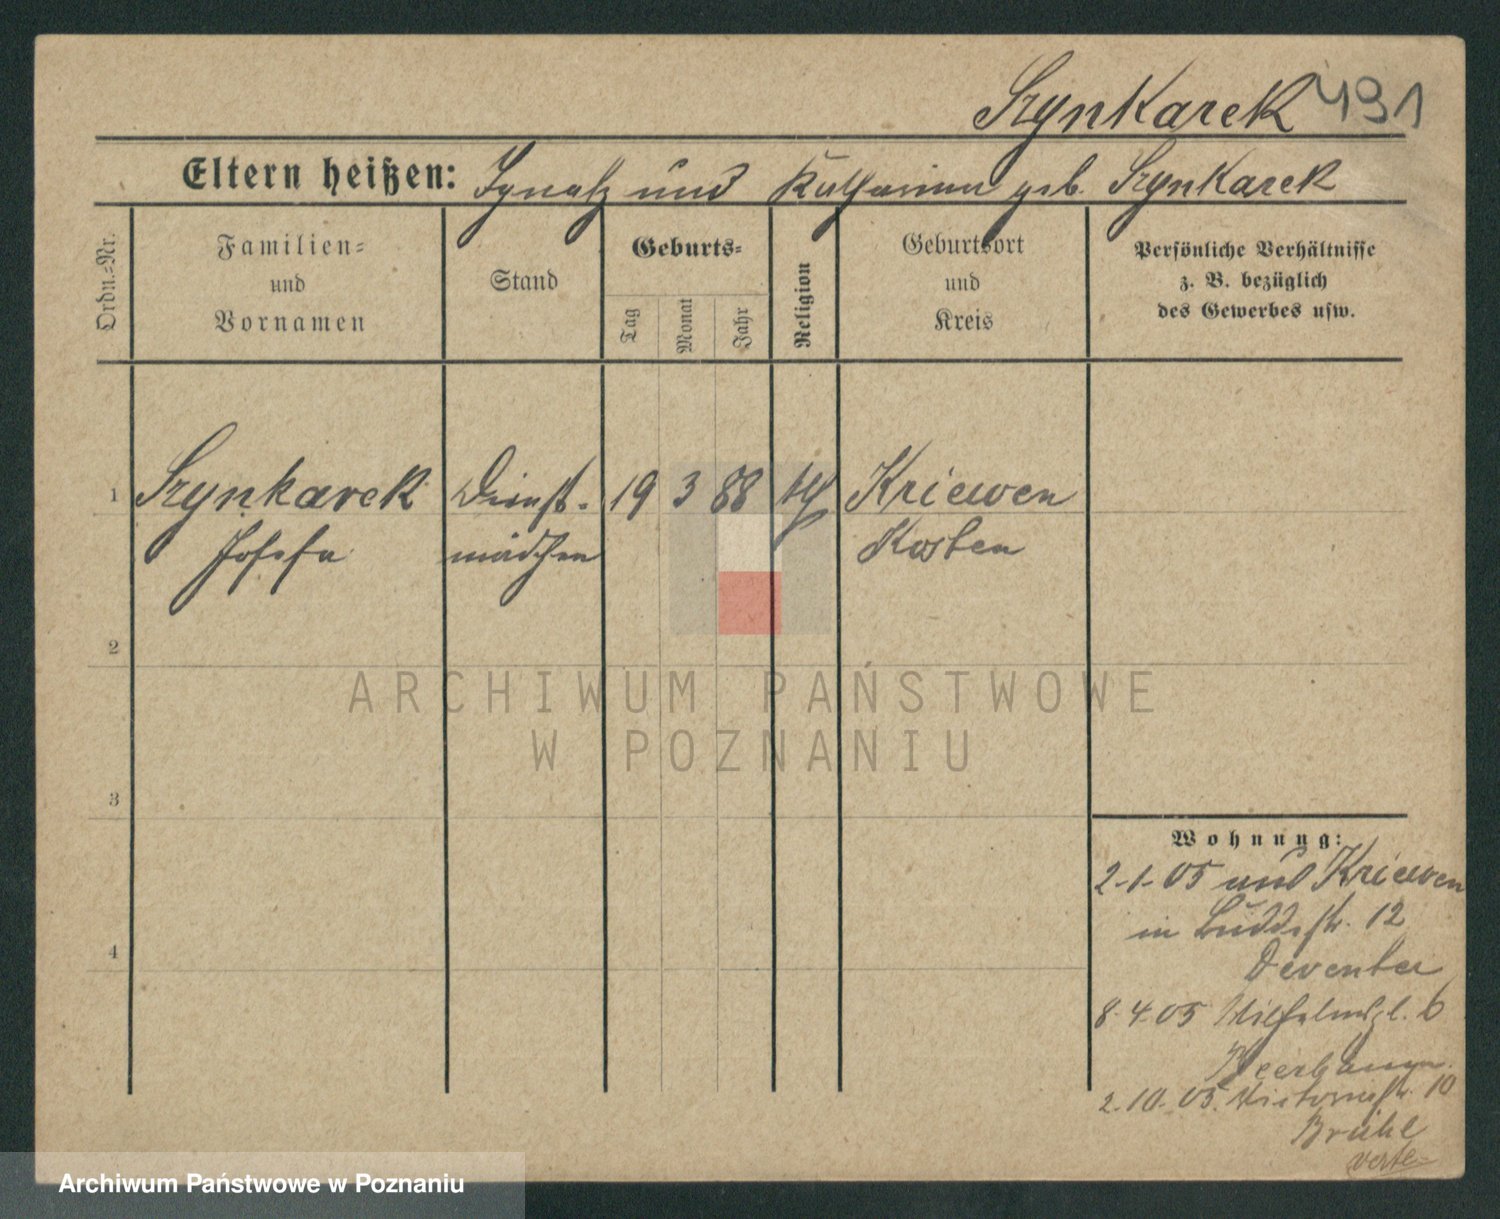 Szynkarek 491
Eltern heißen: Ignatz und Katharina geb. Szynkarek
Ordn.=Nr.
Familien=
und
Vornamen
Stand
Geburts=
Tag
Monat
Jahr
Religion
Geburtsort
und
Kreis
Persönliche Verhältnisse
z. B. bezüglich
des Gewerbes usw.
1 Szynkarek Dienst- 19 3 88 kth Kriewen
Josefa mädchen Kosten
2
ARCHIWUM PAŃSTWOWE
W POZNANIU
3
Wohnung:
2-1-05 aus Kriewen
in Buddestr. 12
4
Deventer
8.4.05 Wilhelmspl. 6
2.10.05 Victoriastr. 10
Brühl
verte
Archiwum Państwowe w Poznaniu